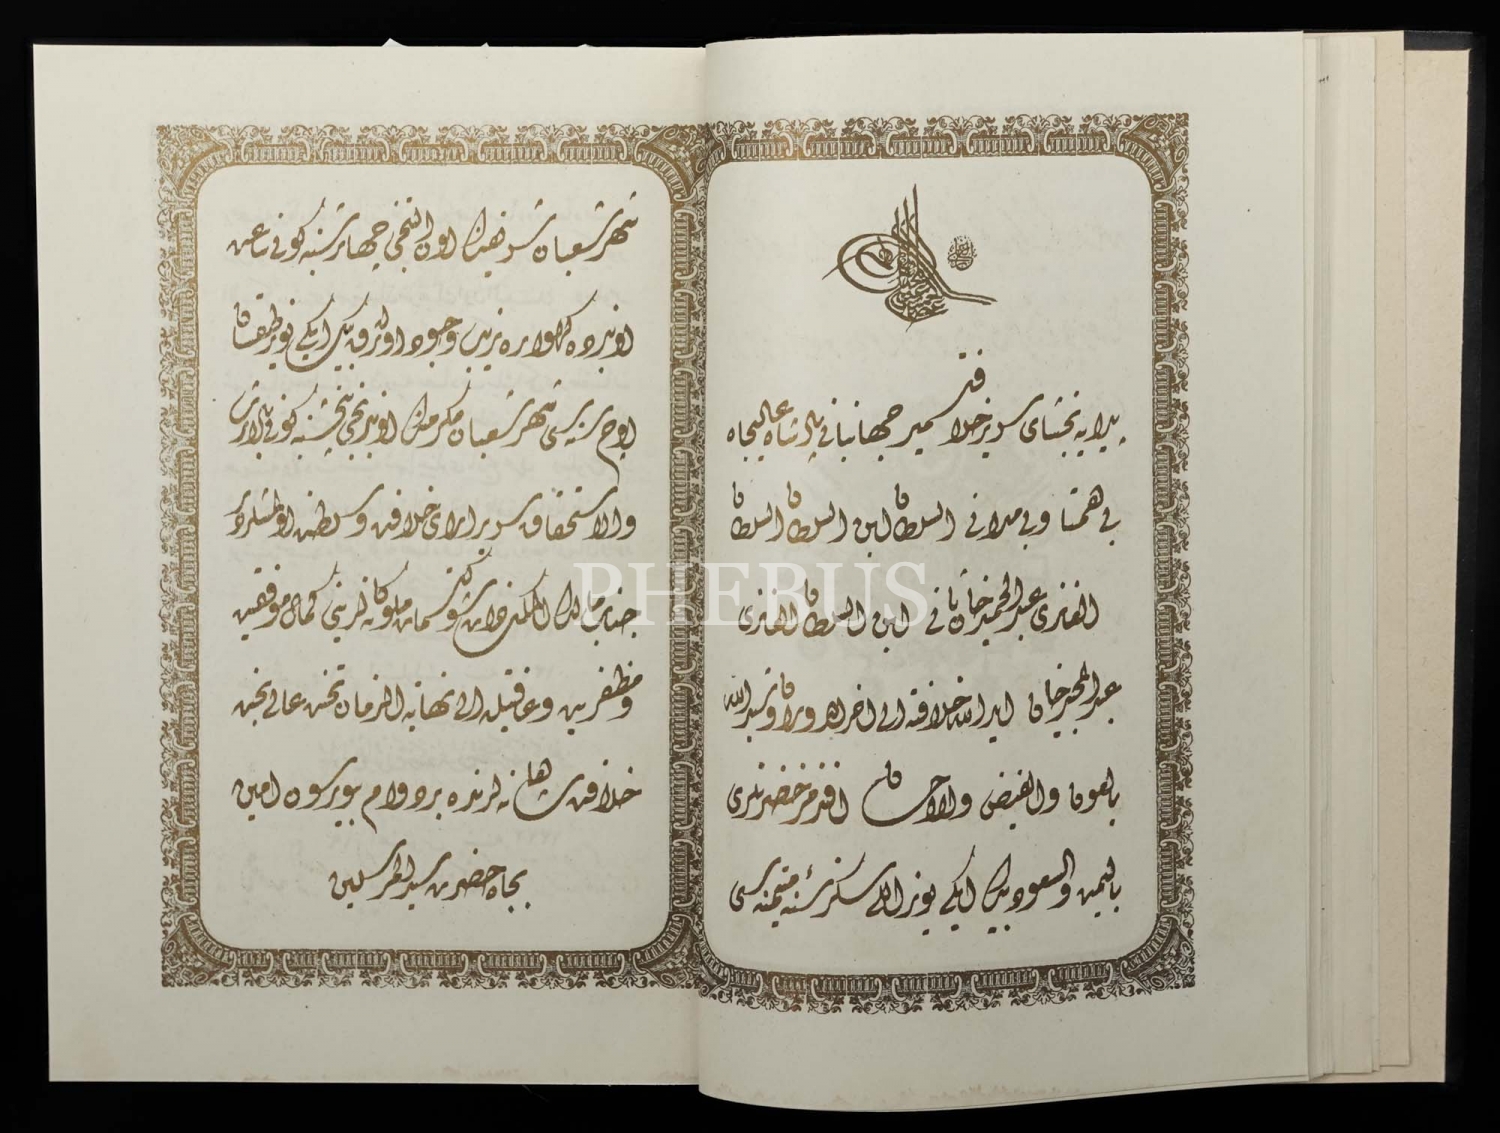 پیرایه بخشای سریر خلافت سمیر جهانبانی پادشاه عالیجاه
بی همتا وبی مدانی السلطان ابن السلطان السلطان
الغازی عبدالحمید خان ثانی ابن السلطان الغازی
عبدالمجید خان اید الله خلافته الی اخر الدوران وشید الله
بالعون والفیض والاحسان افندمز حضرتلری
بالیمن والسعود بیك ایکی یوز اللی سکز سنه متیمنه سی
شهر شعبان شریفینك اون التنجی چهارشنبه کونی ساعت
اوندرده کهواره زیب وجود اوله رق بیك ایکی یوز طقسان
اوچ سنه سی شهر شعبان مکرمنك اوننجی پنجشنبه کونی بالارث
والاستحقاق سریر ارای خلافت وسلطنت اولمشلردر
جناب مالك الملك ذات شوکتسمات ملوکانه لرینی کمال موفقیت
ومظفریت وعافیتله الی نهایة الزمان تخت عالی بخت
خلافت شاهانه لرنده بر دوام بیورسون امین
بجاه حضرت سید المرسلین
PHEBUS